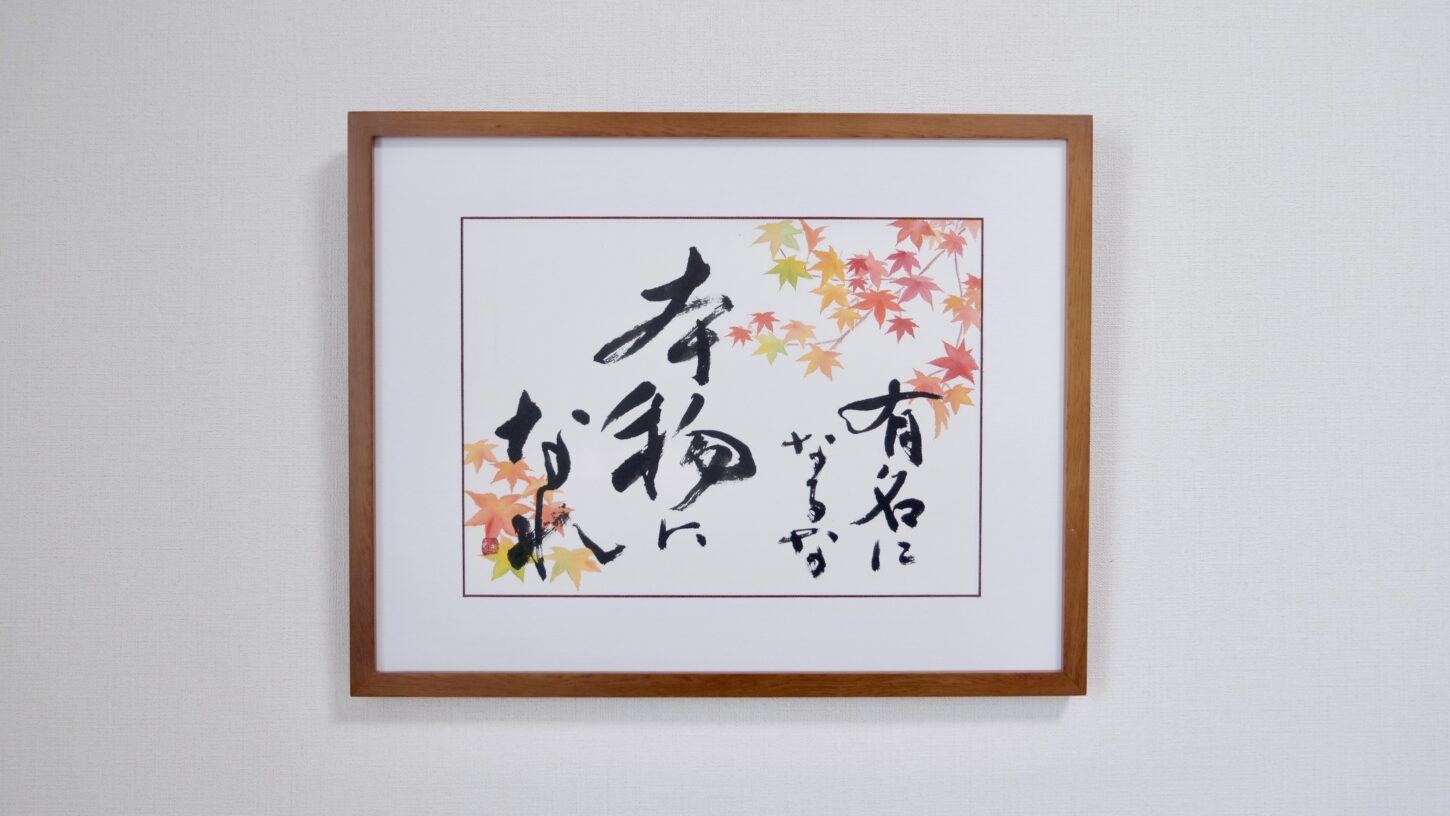 有名に
なるな
本物に
なれ